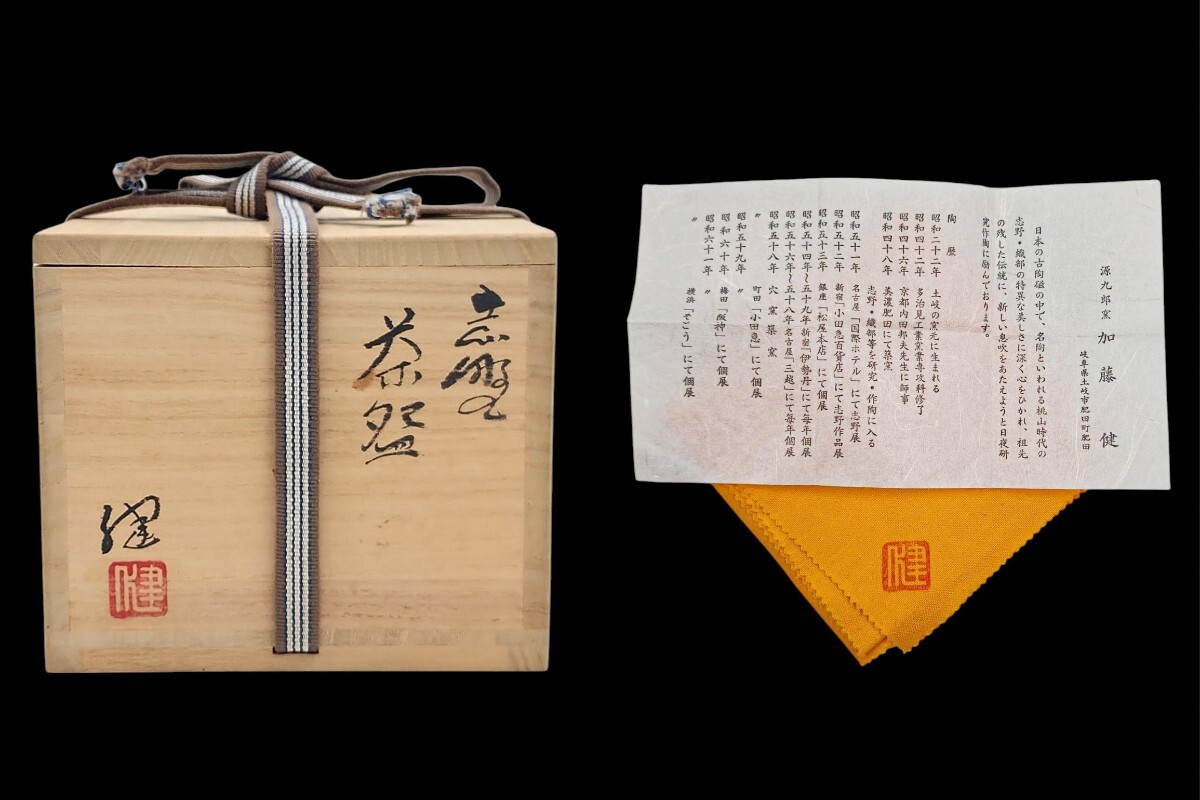 志野
茶盌
健
健
源九郎窯 加藤 健
岐阜県土岐市肥田町肥田
日本の古陶磁の中で、名陶といわれる桃山時代の
志野・織部の特異な美しさに深く心をひかれ、祖先
の残した伝統に、新しい息吹をあたえようと日夜研
究作陶に励んでおります。
陶 歴
昭和二十二年 土岐の窯元に生まれる
昭和四十二年 多治見工業窯業専攻科修了
昭和四十六年 京都内田邦夫先生に師事
昭和四十八年 美濃肥田にて築窯
志野・織部等を研究・作陶に入る
昭和五十一年 名古屋「国際ホテル」にて志野展
昭和五十二年 新宿「小田急百貨店」にて志野作品展
昭和五十三年 銀座「松屋本店」にて個展
昭和五十四年~五十九年 新宿「伊勢丹」にて毎年個展
昭和五十六年~五十八年 名古屋「三越」にて毎年個展
昭和五十八年 穴窯築窯
〃 町田「小田急」にて個展
昭和五十九年 〃
昭和六十年 梅田「阪神」にて個展
昭和六十一年 〃
〃 横浜「そごう」にて個展
健